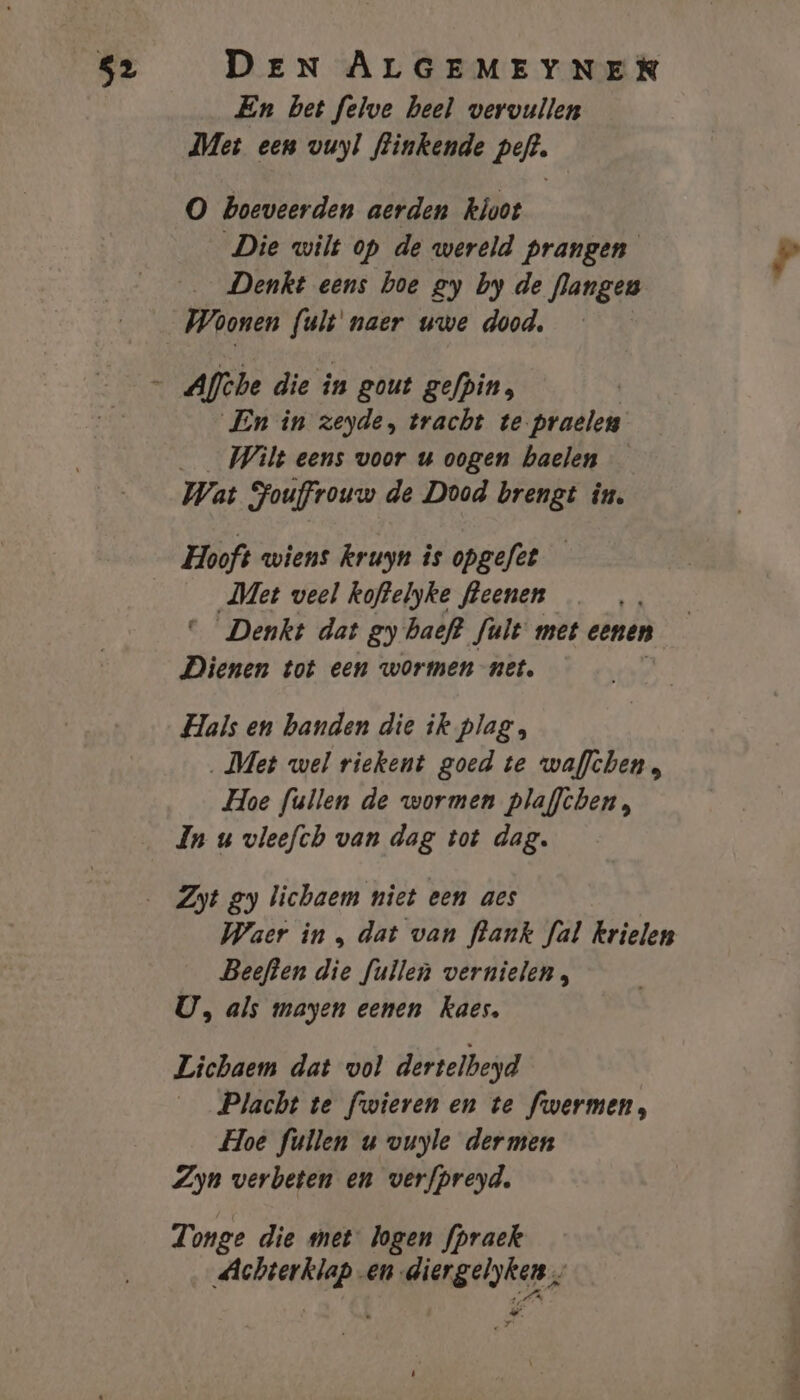 52 DEN ALGEMEYNEN
En het ſelve heel vervullen
Met een vuyl ſtinkende peſt.
O hoeveerden aerden kloot
Die wilt op de wereld prangen
Denkt eens hoe gy by de ſlangen
Woonen ſult naer uwe dood.
Aſſche die in gout geſpin,
En in zeyde, tracht te praelen
Wilt eens voor u oogen haelen
Wat Jouffrouw de Dood brengt in.
Hooft wiens kruyn is opgeſet
Met veel koſtelyke ſteenen
Denkt dat gy haeſt ſult met eenen
Dienen tot een wormen net.
Hals en handen die ik plag,
Met wel riekent goed te waſſchen,
Hoe ſullen de wormen plaſſchen,
In u vleeſch van dag tot dag.
Zyt gy lichaem niet een aes
Waer in, dat van ſtank ſal krielen
Beeſten die ſullen vernielen,
U, als mayen eenen kaes.
Lichaem dat vol dertelheyd
Placht te ſwieren en te ſwermen,
Hoe ſullen u vuyle dermen
Zyn verbeten en verſpreyd.
Tonge die met logen ſpraek
Achterklap en diergelyken,